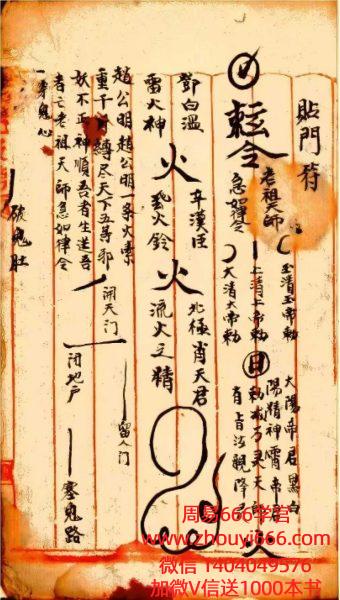 貼門符
玉清玉帝勅
上清上帝勅
太清大帝勅
老祖天師
急如律令
令
日
太陽帝君黑白
陽精神霄帝君
火
鄧白溫
雷火神
火
火
辛漢臣
火鈴
北極肖天君
流火之精
趙公明趙公明一条火索
重千斤縛尽天下五等邪
妖不正神順吾者生逆吾
者亡老祖天師急如律令
開天门
留人门
閉地户
塞鬼路
破鬼肚
周易666学宫
www.zhouyi666.com
微信 1404049576
加微V信送1000本书